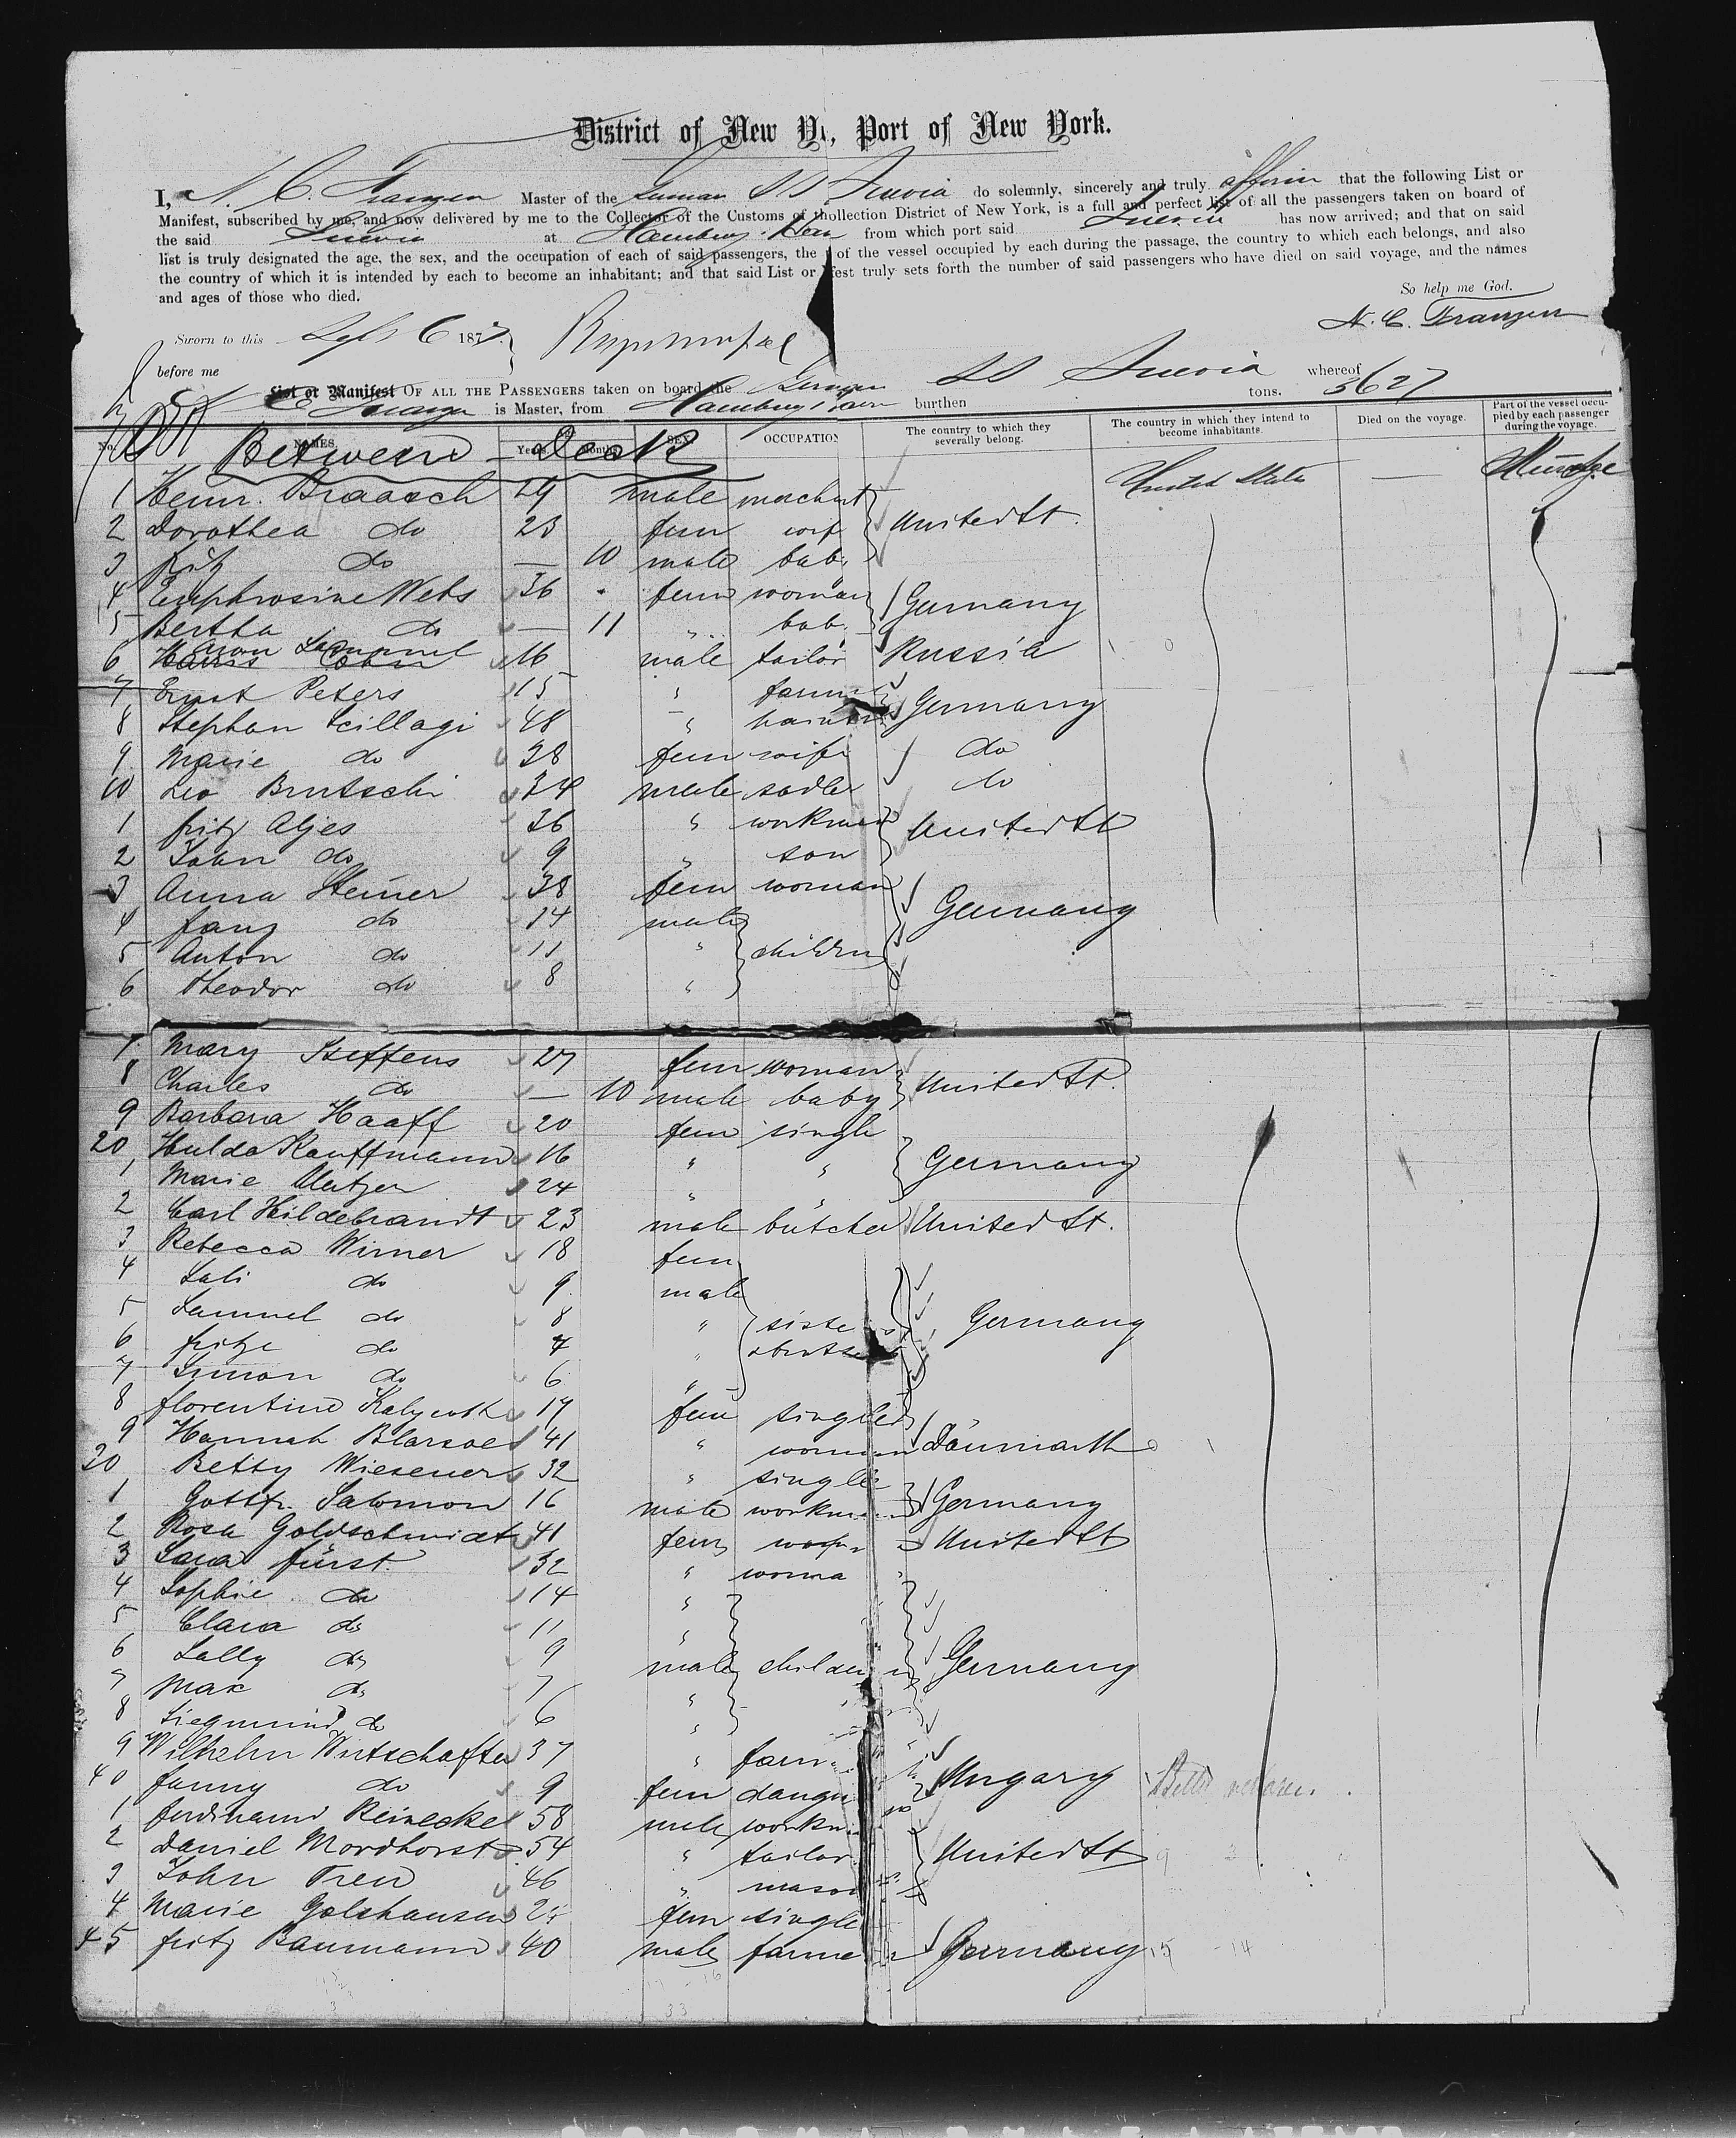 District of New Y, Port of New York.
I, N. C. Franzen Master of the German SS Suevia do solemnly, sincerely and truly affirm that the following List or
Manifest, subscribed by me, and now delivered by me to the Collector of the Customs of thollection District of New York, is a full and perfect list of all the passengers taken on board of
the said Suevia at Hamburg, Havre from which port said Suevia has now arrived; and that on said
list is truly designated the age, the sex, and the occupation of each of said passengers, the of the vessel occupied by each during the passage, the country to which each belongs, and also
the country of which it is intended by each to become an inhabitant; and that said List or fest truly sets forth the number of said passengers who have died on said voyage, and the names
and ages of those who died.
So help me God.
N. C. Franzen
Sworn to this Sept 6 187
before me
List or Manifest OF ALL THE PASSENGERS taken on board the German SS Suevia whereof
Franzen is Master, from Hamburg, Havre burthen 3627 tons.
No. NAMES. Years. Months. SEX. OCCUPATION The country to which they severally belong. The country in which they intend to become inhabitants. Died on the voyage. Part of the vessel occupied by each passenger during the voyage.
Between Deck
1 Henr. Braasch 29 male merchant United States —
2 Dorothea do 23 fem wif United St.
3 Fritz do — 10 male bab.
4 Euphrosine Webs 36 fem woman Germany
5 Bertha do — 11 " bab.
6 Samuel 16 male tailor Russia
7 Ernst Peters 15 " farm
8 Stephan Scillagi 48 " Germany
9 Marie do 38 fem wife do
10 Leo Brutschi 34 male sadler do
1 Fritz Aljes 36 " workman United St
2 John do 9 " son
3 Anna Steiner 38 fem woman
4 Franz do 14 male Germany
5 Anton do 11 " children
6 Theodor do 8 "
7 Mary Steffens 27 fem woman
8 Charles do — 10 male baby United St.
9 Barbara Haaff 20 fem single
20 Hulda Kauffmann 16 " " Germany
1 Marie Metzger 24 " "
2 Carl Hildebrandt 23 male butcher United St.
3 Rebecca Wimer 18 fem
4 Sali do 9 male
5 Samuel do 8 " siste s Germany
6 Fritze do 7 "
7 Simon do 6 "
8 Florentine 17 fem single
9 Hannah 41 " woman Dänmark
30 Betty Wiesener 32 " single
1 Gottfr. Salomon 16 male workm Germany
2 Rosa Goldschmidt 41 fem United St
3 Sara Fürst 32 " woma
4 Sophie do 14 "
5 Clara do 11 "
6 Sally do 9 male children Germany
7 Max do 7 "
8 Siegmund do 6 "
9 Wilhelm Wirtschafter 37 " farm
40 Fanny do 9 fem Ungary
1 Ferdinand Reinecke 58 male workm
2 Daniel Mordhorst 54 " tailor United St
3 John Treu 46 " mason
4 Marie Golshausen 24 fem single
45 Fritz Baumann 40 male farme Germany